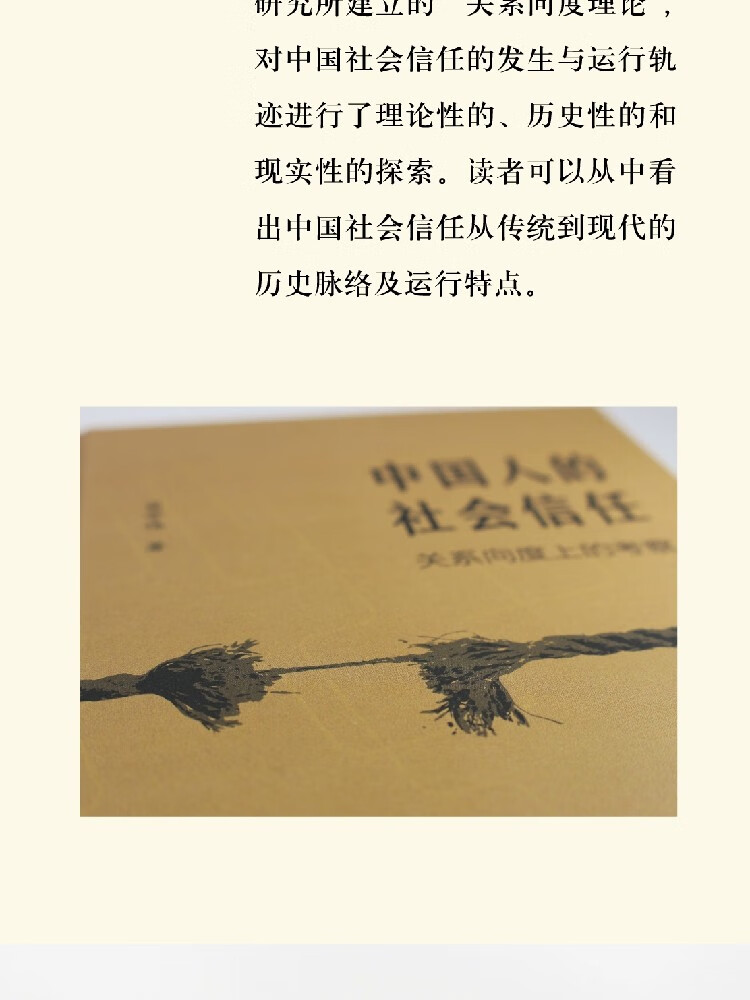 研究所建立的“关系向度理论”，
对中国社会信任的发生与运行轨
迹进行了理论性的、历史性的和
现实性的探索。读者可以从中看
出中国社会信任从传统到现代的
历史脉络及运行特点。
中国人的
社会信任
关系向度上的考察